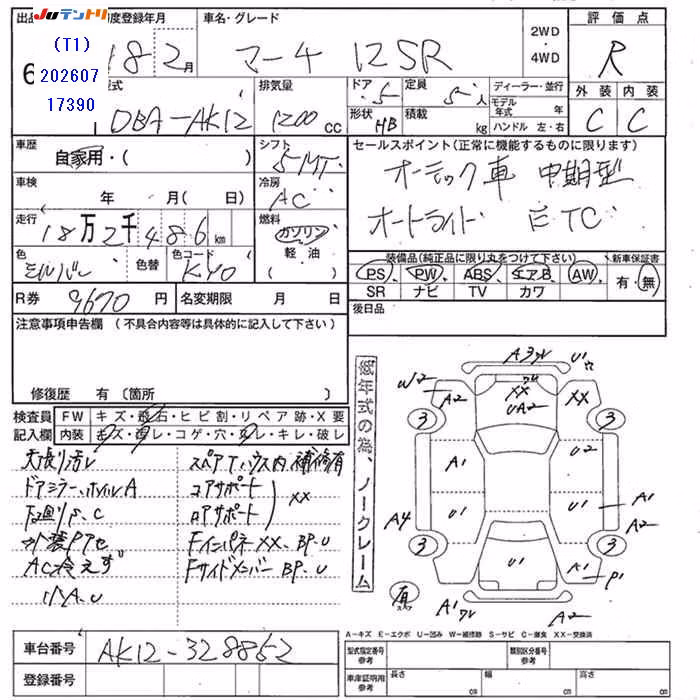 JUテントリ
出品 初度登録年月 車名・グレード 2WD・4WD 評価点
(T1)
202607
17390
18 2月 マーチ 12SR R
型式 排気量 ドア 定員 ディーラー・並行 外装 内装
DBA-AK12 1200cc 5 5人 モデル年式 年
形状 HB 積載 kg ハンドル 左・右 C C
車歴 自家用・( ) シフト 5MT セールスポイント(正常に機能するものに限ります)
車検 年 月( 日) 冷房 AC オーテック車 中期型
走行 18万2千486km 燃料 ガソリン 軽油 ( ) オートライト ETC
色 シルバー 色替 色コード KY0 装備品(純正品に限り丸をつけて下さい) 新車保証書
PS PW ABS エアB AW 有・無
SR ナビ TV カワ
R券 9670円 名変期限 月 日 後日品
注意事項申告欄(不具合内容等は具体的に記入して下さい)
修復歴 有(箇所 )
検査員記入欄 FW キズ・飛石・ヒビ割・リペア跡・X要
内装 キズ・汚レ・コゲ・穴・スレ・キレ・破レ
天張リ汚レ
ドアミラー、ホイルA
下廻りP、C
外装Pアセ
AC冷えず
小A、U
スペアTハウス内補修有
コアサポート XX
ロアサポート
Fインパネ XX、BP、U
Fサイドメンバー BP、U
低年式の為、ノークレーム
A3ワレ U1
W2 A2 ワレ XX UA2 XX
3 3
A1 U2
A4 U1 U1 A1 A2
3 3
A1 P1
U1
有 スペア A1ワレ A2
A-キズ E-エクボ U-凹み W-補修跡 S-サビ C-腐食 XX-交換済
車台番号 AK12-328852
登録番号
型式指定番号参考 類別区分番号参考
車庫証明用参考 長さ cm 幅 cm 高さ cm